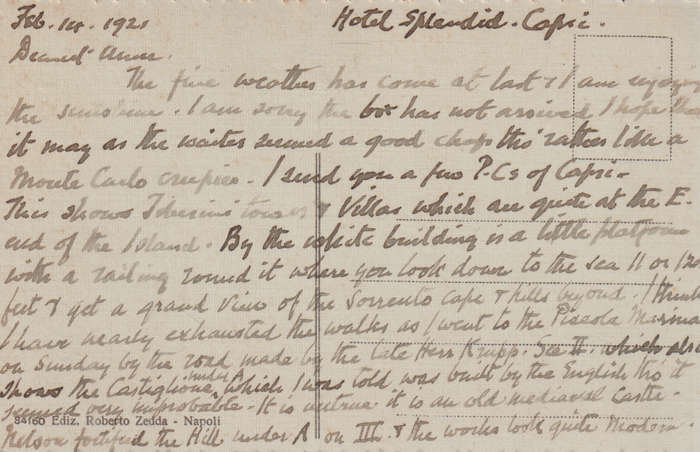 Feb. 14. 1921 Hotel Splendid. Capri.
Dearest Anne.
The fine weather has come at last & I am enjoying
the sunshine. I am sorry the box has not arrived I hope that
it may as the waiter seemed a good chap tho' rather like a
Monte Carlo croupier. I send you a few P-Cs of Capri-
This shows Tiberius' tower & Villas which are quite at the E.
end of the Island. By the white building is a little platform
with a railing round it where you look down to the sea 11 or 120
feet & get a grand view of the Sorrento Cape & hills beyond. I think
I have nearly exhausted the walks as I went to the Piccola Marina
on Sunday by the road made by the late Herr Krupp. See II. which also
shows the Castiglione, under A which I was told was built by the English tho it
seemed very improbable - It is untrue it is an old mediaeval Castle -
84160 Ediz. Roberto Zedda - Napoli
Nelson fortified the Hill under A on III. & the works look quite modern.